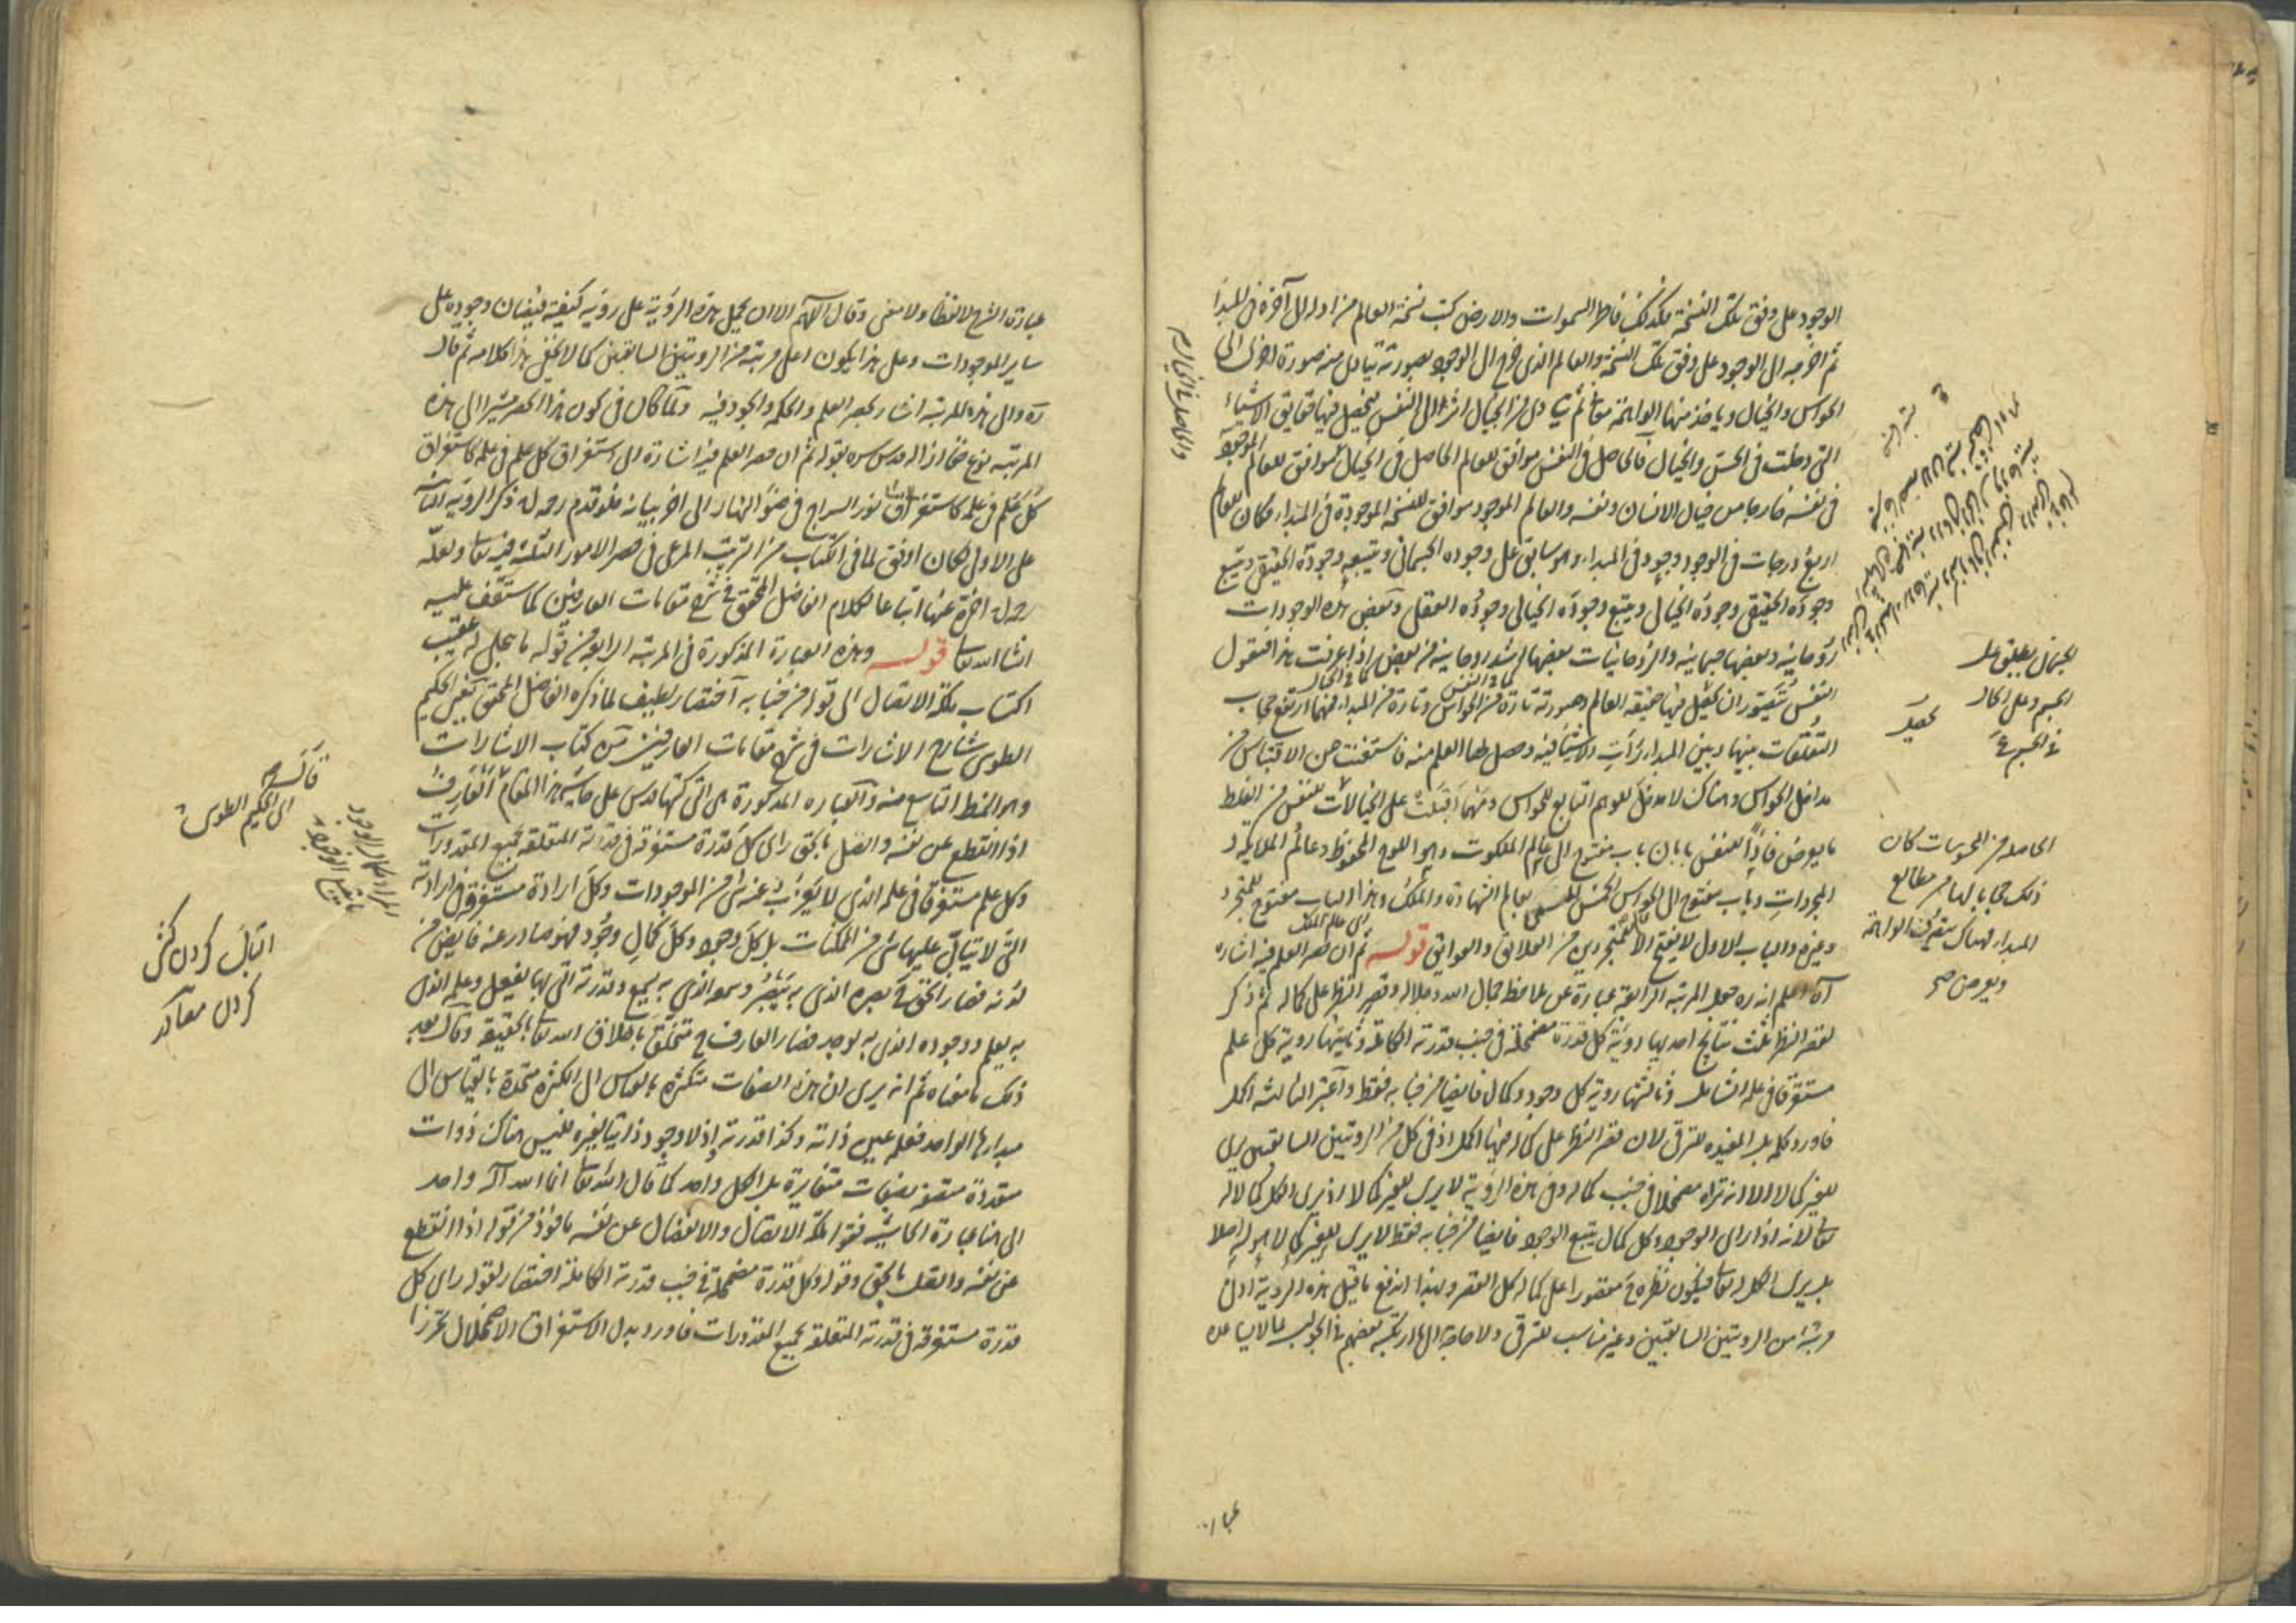 الوجود على وفق تلك النسخة فكذلك فاطر السموات والارض كتب نسخة العالم من اوله الى آخره فى المبدأ
ثم اخرجه الى الوجود على وفق تلك النسخة والعالم الذى خرج الى الوجود بصورته تتادى منه صورة اخرى الى
الحواس والخيال وياخذ منها الواهمة معانى ثم يتادى من الخيال اثر الى النفس فيحصل فيها حقايق الاشياء
التى دخلت فى الحس والخيال فالحاصل فى النفس موافق للعالم الحاصل فى الخيال الموافق للعالم الموجود
فى نفسه خارجا من خيال الانسان ونفسه والعالم الموجود موافق للنسخة الموجودة فى المبداء فكان للعالم
اربع درجات فى الوجود وجود فى المبداء وهو سابق على وجوده الجسمانى ويتبعه وجوده الحقيقى ويتبع
وجوده الحقيقى وجوده الخيالى ويتبع وجوده الخيالى وجوده العقلى وبعض هذه الوجودات
روحانية وبعضها جسمانية والروحانيات بعضها اشد روحانية من بعض اذا عرفت هذا فنقول
النفس يتصور ان يحصل فيها حقيقة العالم وصورته تارة من الحواس وتارة من المبداء فمهما ارتفع حجاب
التعلقات بينها وبين المبداء رأت الاشياء فيه وحصل لها العلم منه فاستغنت عن الاقتباس من
مداخل الحواس وهناك لا مدخل للوهم التابع للحواس ومهما اقبلت على الخيالات للنفس من الغلط
ما يعرض فاذا للنفس بابان باب مفتوح الى عالم الملكوت وهو اللوح المحفوظ وعالم الملائكة و
المجردات وباب مفتوح الى الحواس الخمس بعالم الشهادة والملك وهذا الباب مفتوح للمتجرد
وغيره والباب الاول لا يفتح الا للمتجردين من العلائق والعوائق قوله ثم ان حصر العلم فيه اشارة
آه اعلم انه ره جعل المرتبة الرابعة عبارة عن ملاحظة جمال الله وجلاله وقصر النظر على كماله ثم ذكر
لقصر النظر ثلث نتايج احديها روية كل قدرة مضمحلة فى جنب قدرته الكاملة وثانيتها روية كل علم
مستغرقا فى علمه الشامل وثالثتها روية كل وجود وكمال فايضا من جنابه فقط واعتبر الثالثة اكمل
فاورد كلمة بل المفيدة للترقى لان قصر النظر على كماله فيها اكمل اذ فى كل من الرويتين السابقتين يرى
للغير كمالا الا انه تراه مضمحلا فى جنب كماله وفى هذه الروية لا يرى للغير كمالا اذ يرى الكل كمالا له
تعا لانه اذا راى الوجود وكل كمال يتبع الوجود فايضا من جنابه فقط لا يرى للغير كمالا هو له اصلا
بل يرى الكل له تعا فيكون نظره ح مقصورا على كماله كل القصر وبهذا اندفع ما قيل هذه الروية ادنى
مرتبة من الرويتين السابقتين وغير مناسب للترقى ولا حاجة الى ما ارتكبه بعضهم فى الجواب بما لا يساعده
والحاصل فى الخيال صح
الجسمانى يطلق على
الجسم وعلى الحال
فى الجسم
الحاصلة من المحسوسات كان
ذلك حجابا لها من مطالعة
المبداء فهناك يتصرف الواهمة
ويعرض صح
عبارة
عبارة الشرح لا لفظا ولا معنى وقال اللهم الا ان يحمل هذه الروية على روية كيفية فيضان وجوده على
ساير الموجودات وعلى هذا يكون اعلى مرتبة من الرويتين السابقتين كما لا يخفى هذا كلامه ثم قال
ره والى هذه المرتبة اشار بحصر العلم والحكمة والجود فيه ولما كان فى كون هذا الحصر مشيرا الى هذه
المرتبة نوع خفاء ازاله قدس سره بقوله ثم ان حصر العلم فيه اشارة الى استغراق كل علم فى علمه كاستغراق
كل علم فى علمه كاستغراق نور السراج فى ضوء النهار الى اخر بيانه فلو قدم رحمه الله ذكر الروية الثانية
على الاولى لكان اوفق لما فى الكتاب من الترتيب المرعى فى حصر الامور الثلثة فيه تعا ولعله
رحمه الله اخره عنها اتباعا لكلام الفاضل المحقق فى شرح مقامات العارفين كما ستقف عليه
انشا الله تعا قوله وهذه العبارة المذكورة فى المرتبة الرابعة من قوله ما يتجلى له عقيب
اكتساب ملكة الاتصال الى قوله من جنابه اختصار لطيف لما ذكره الفاضل المحقق نصير الحكيم
الطوسى شارح الاشارات فى شرح مقامات العارفين من كتاب الاشارات
وهو النمط التاسع منه والعباره المذكورة هى التى كتبها قدس على حاشية هذا المقام العارف
اذا انقطع عن نفسه واتصل بالحق راى كل قدرة مستغرقة فى قدرته المتعلقة بجميع المقدورات
وكل علم مستغرقا فى علمه الذى لا يعزب عنه شئ من الموجودات وكل ارادة مستغرقة فى ارادته
التى لا يتابى عليها شئ من الممكنات بل كل وجود وكل كمال وجود فهو صادر عنه فايض من
لدنه فصار الحق ح بصره الذى به يبصر وسمعه الذى به يسمع وقدرته التى بها يفعل وعلمه الذى
به يعلم ووجوده الذى به يوجد فصار العارف ح متخلقا باخلاق الله تعا بالحقيقة وقال بعد
ذلك ما معناه ثم انه يرى ان هذه الصفات متكثرة بالقياس الى الكثرة متحدة بالقياس الى
مبدئها الواحد فعلمه عين ذاته وكذا قدرته اذ لا وجود ذاتيا لغيره فليس هناك ذوات
متعددة متصفة بصفات متغايرة بل الكل واحد كما قال الله تعا انما الله اله واحد
الى هنا عبارة الحاشية فقوله ملكة الاتصال والانفصال عن نفسه ماخوذ من قوله اذا انقطع
عن نفسه واتصل بالحق وقوله وكل قدرة مضمحلة فى جنب قدرته الكاملة اختصار لقوله راى كل
قدرة مستغرقة فى قدرته المتعلقة بجميع المقدورات فاورد بدل الاستغراق الاضمحلال تحرزا
الى الحكيم الطوسى